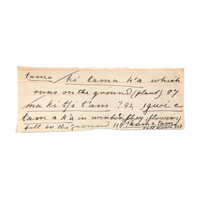 tama ki tama k'a which
runs on the ground (plant) 87
ma ki t's t'am ? 92, igwi c
tam a k'a in winter they (flowers)
fall to the ground 118 k'ama tam